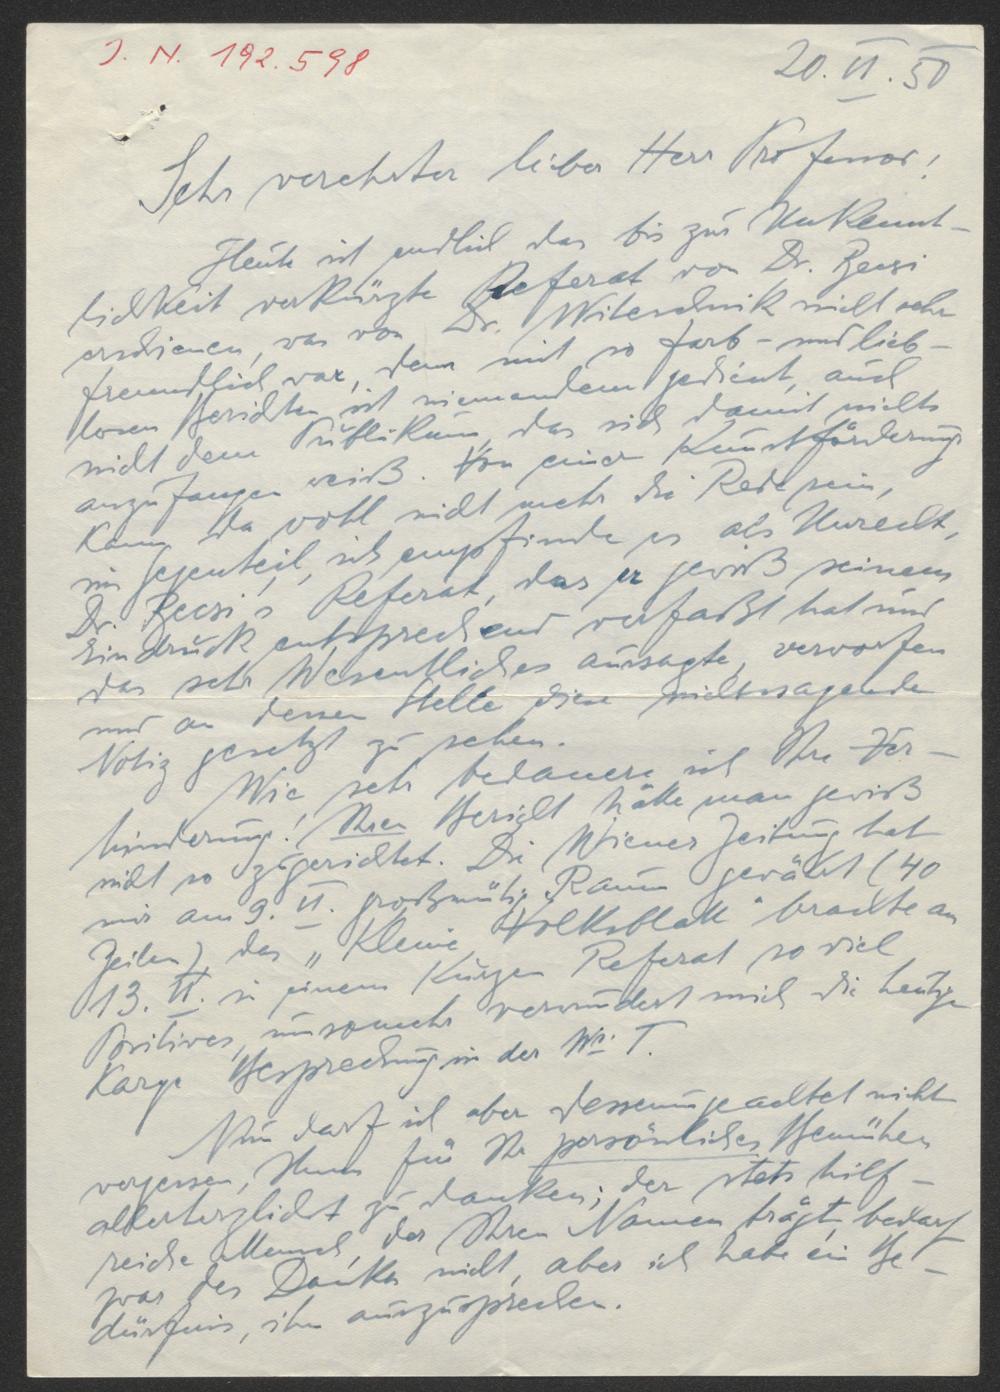 J. N. 192.598
20. II. 50
Sehr verehrter lieber Herr Professor!
Heute ist endlich das bis zur Unkennt-
lichkeit verkürzte Referat von Dr. Becsi
erschienen, was von Dr. Witeschnik nicht sehr
freundlich war, denn mit so farb- und lieb-
losen Berichten ist niemandem gedient, auch
nicht dem Publikum, das sich damit nichts
anzufangen weiß. Von einer Kunstförderung
kann da wohl nicht mehr die Rede sein,
im Gegenteil, ich empfinde es als Unrecht,
Dr. Becsi's Referat, das er gewiß seinem
Eindruck entsprechend verfaßt hat und
das sehr Wesentliches aussagte, verworfen
und an dessen Stelle diese nichtssagende
Notiz gesetzt zu sehen.
Wie sehr bedauere ich Ihre Ver-
hinderung! Ihren Bericht hätte man gewiß
nicht so zugerichtet. Die Wiener Zeitung hat
mir am 9. II. großmütig Raum gewährt (40
Zeilen), das „Kleine Volksblatt" brachte am
13. II. in einem kurzen Referat so viel
Positives, umsomehr verwundert mich die heutige
karge Besprechung in der Wr. T.
Nun darf ich aber dessenungeachtet nicht
vergessen, Ihnen für Ihr persönliches Bemühen
allerherzlichst zu danken; der stets hilf-
reiche Mensch, der Ihren Namen trägt, bedarf
zwar des Dankes nicht, aber ich habe ein Be-
dürfnis, ihn auszusprechen.